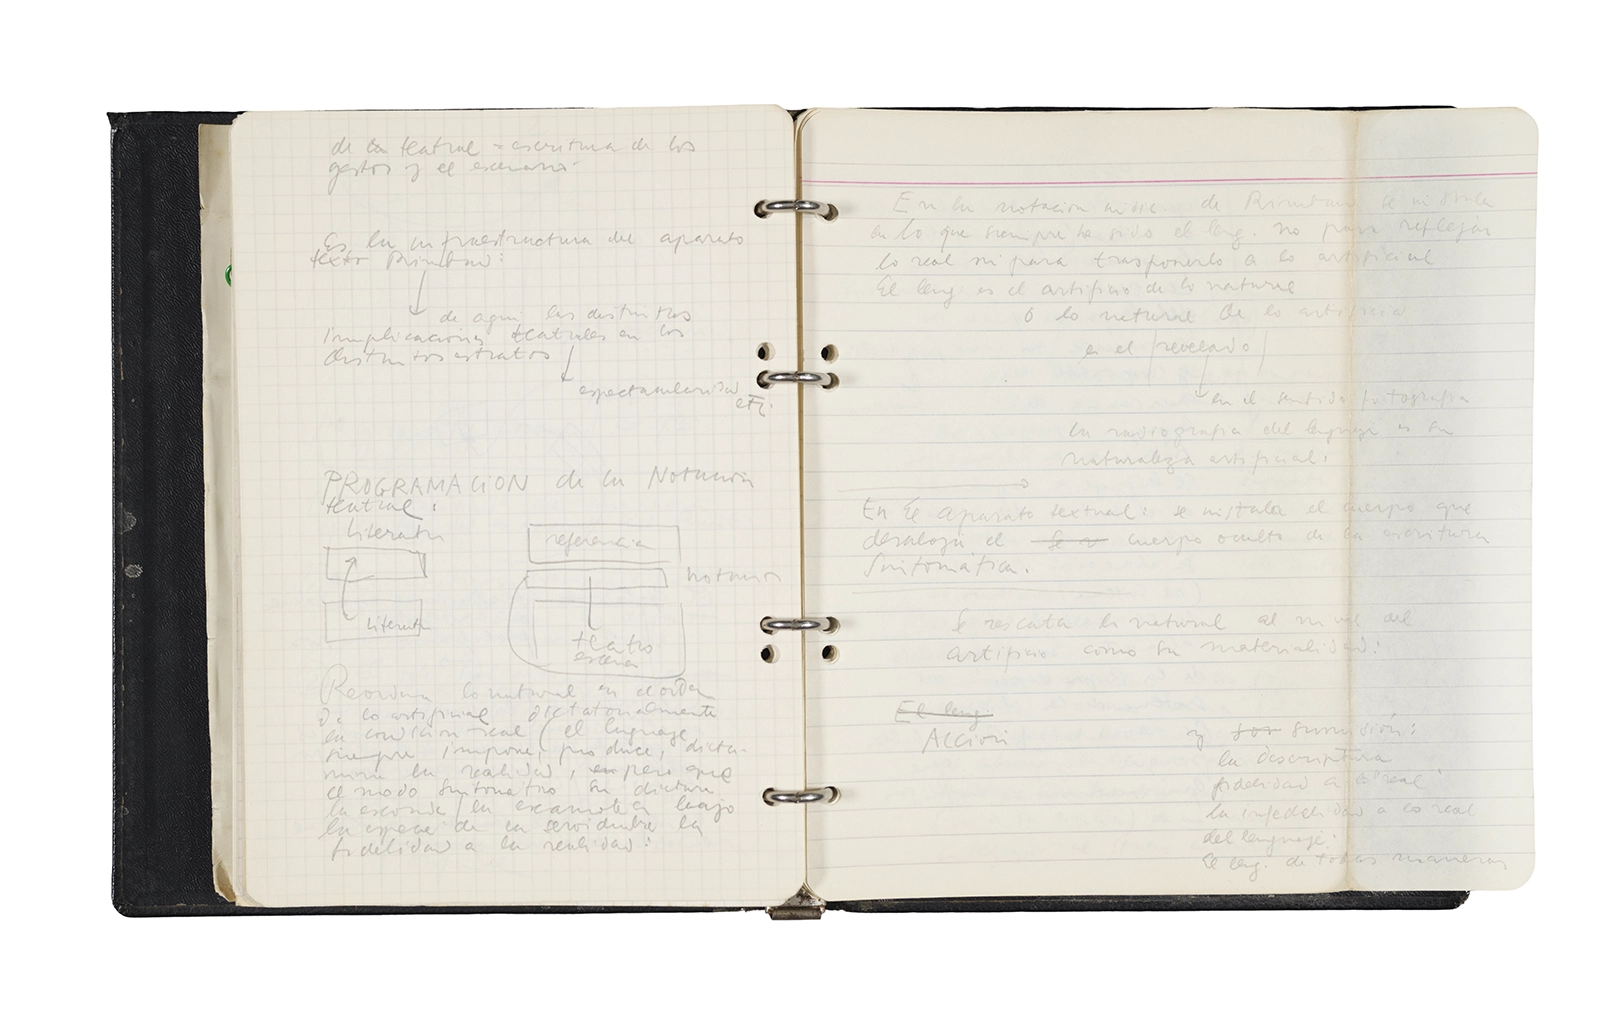 de la teatral = escritura de los
gestos y el escenario
Es la infraestructura del aparato
texto Rimbaud:
de aquí las distintas
implicaciones teatrales en los
distintos estratos
espectacularidad
etc.
PROGRAMACION de la Notación
teatral:
literatu
referencia
notacion
literatu
teatro
escena
Reordena lo natural en el orden
de lo artificial dictatorialmente
en condición real (el lenguaje
siempre impone, produce, dicta-
mina la realidad, pero que
el modo sintomático su dictadura
la esconde / la escamotea bajo
la especie de la servidumbre la
fidelidad a la realidad:
En la notación de Rimbaud se instala
en lo que siempre ha sido el leng. no para reflejar
lo real ni para trasponerlo a lo artificial
El leng es el artificio de lo natural
o lo natural de lo artificio
es el revelado
en el sentido fotografia
la radiografia del lenguaje es su
naturaleza artificial.
En El aparato textual: se instala el cuerpo que
desaloja el cuerpo oculto de la escritura
sintomática.
Se rescata lo natural al nivel del
artificio como su materialidad:
El leng.
Acción
y sumisión:
la descriptura
fidelidad a lo "real"
la infidelidad a lo real
del lenguaje:
El leng. de todas maneras